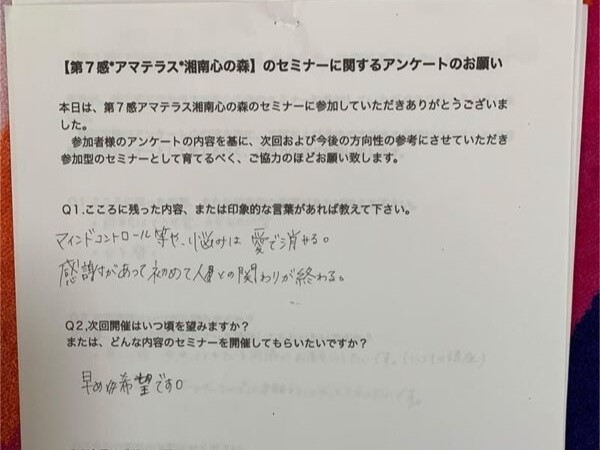 【第７感*アマテラス*湘南心の森】のセミナーに関するアンケートのお願い
本日は、第７感アマテラス湘南心の森のセミナーに参加していただきありがとうございま
した。
参加者様のアンケートの内容を基に、次回および今後の方向性の参考にさせていただき
参加型のセミナーとして育てるべく、ご協力のほどお願い致します。
Ｑ1.こころに残った内容、または印象的な言葉があれば教えて下さい。
マインドコントロール等や、悩みは愛で消せる。
感謝があって初めて人との関わりが終わる。
Ｑ2,次回開催はいつ頃を望みますか？
または、どんな内容のセミナーを開催してもらいたいですか？
早めな希望です。